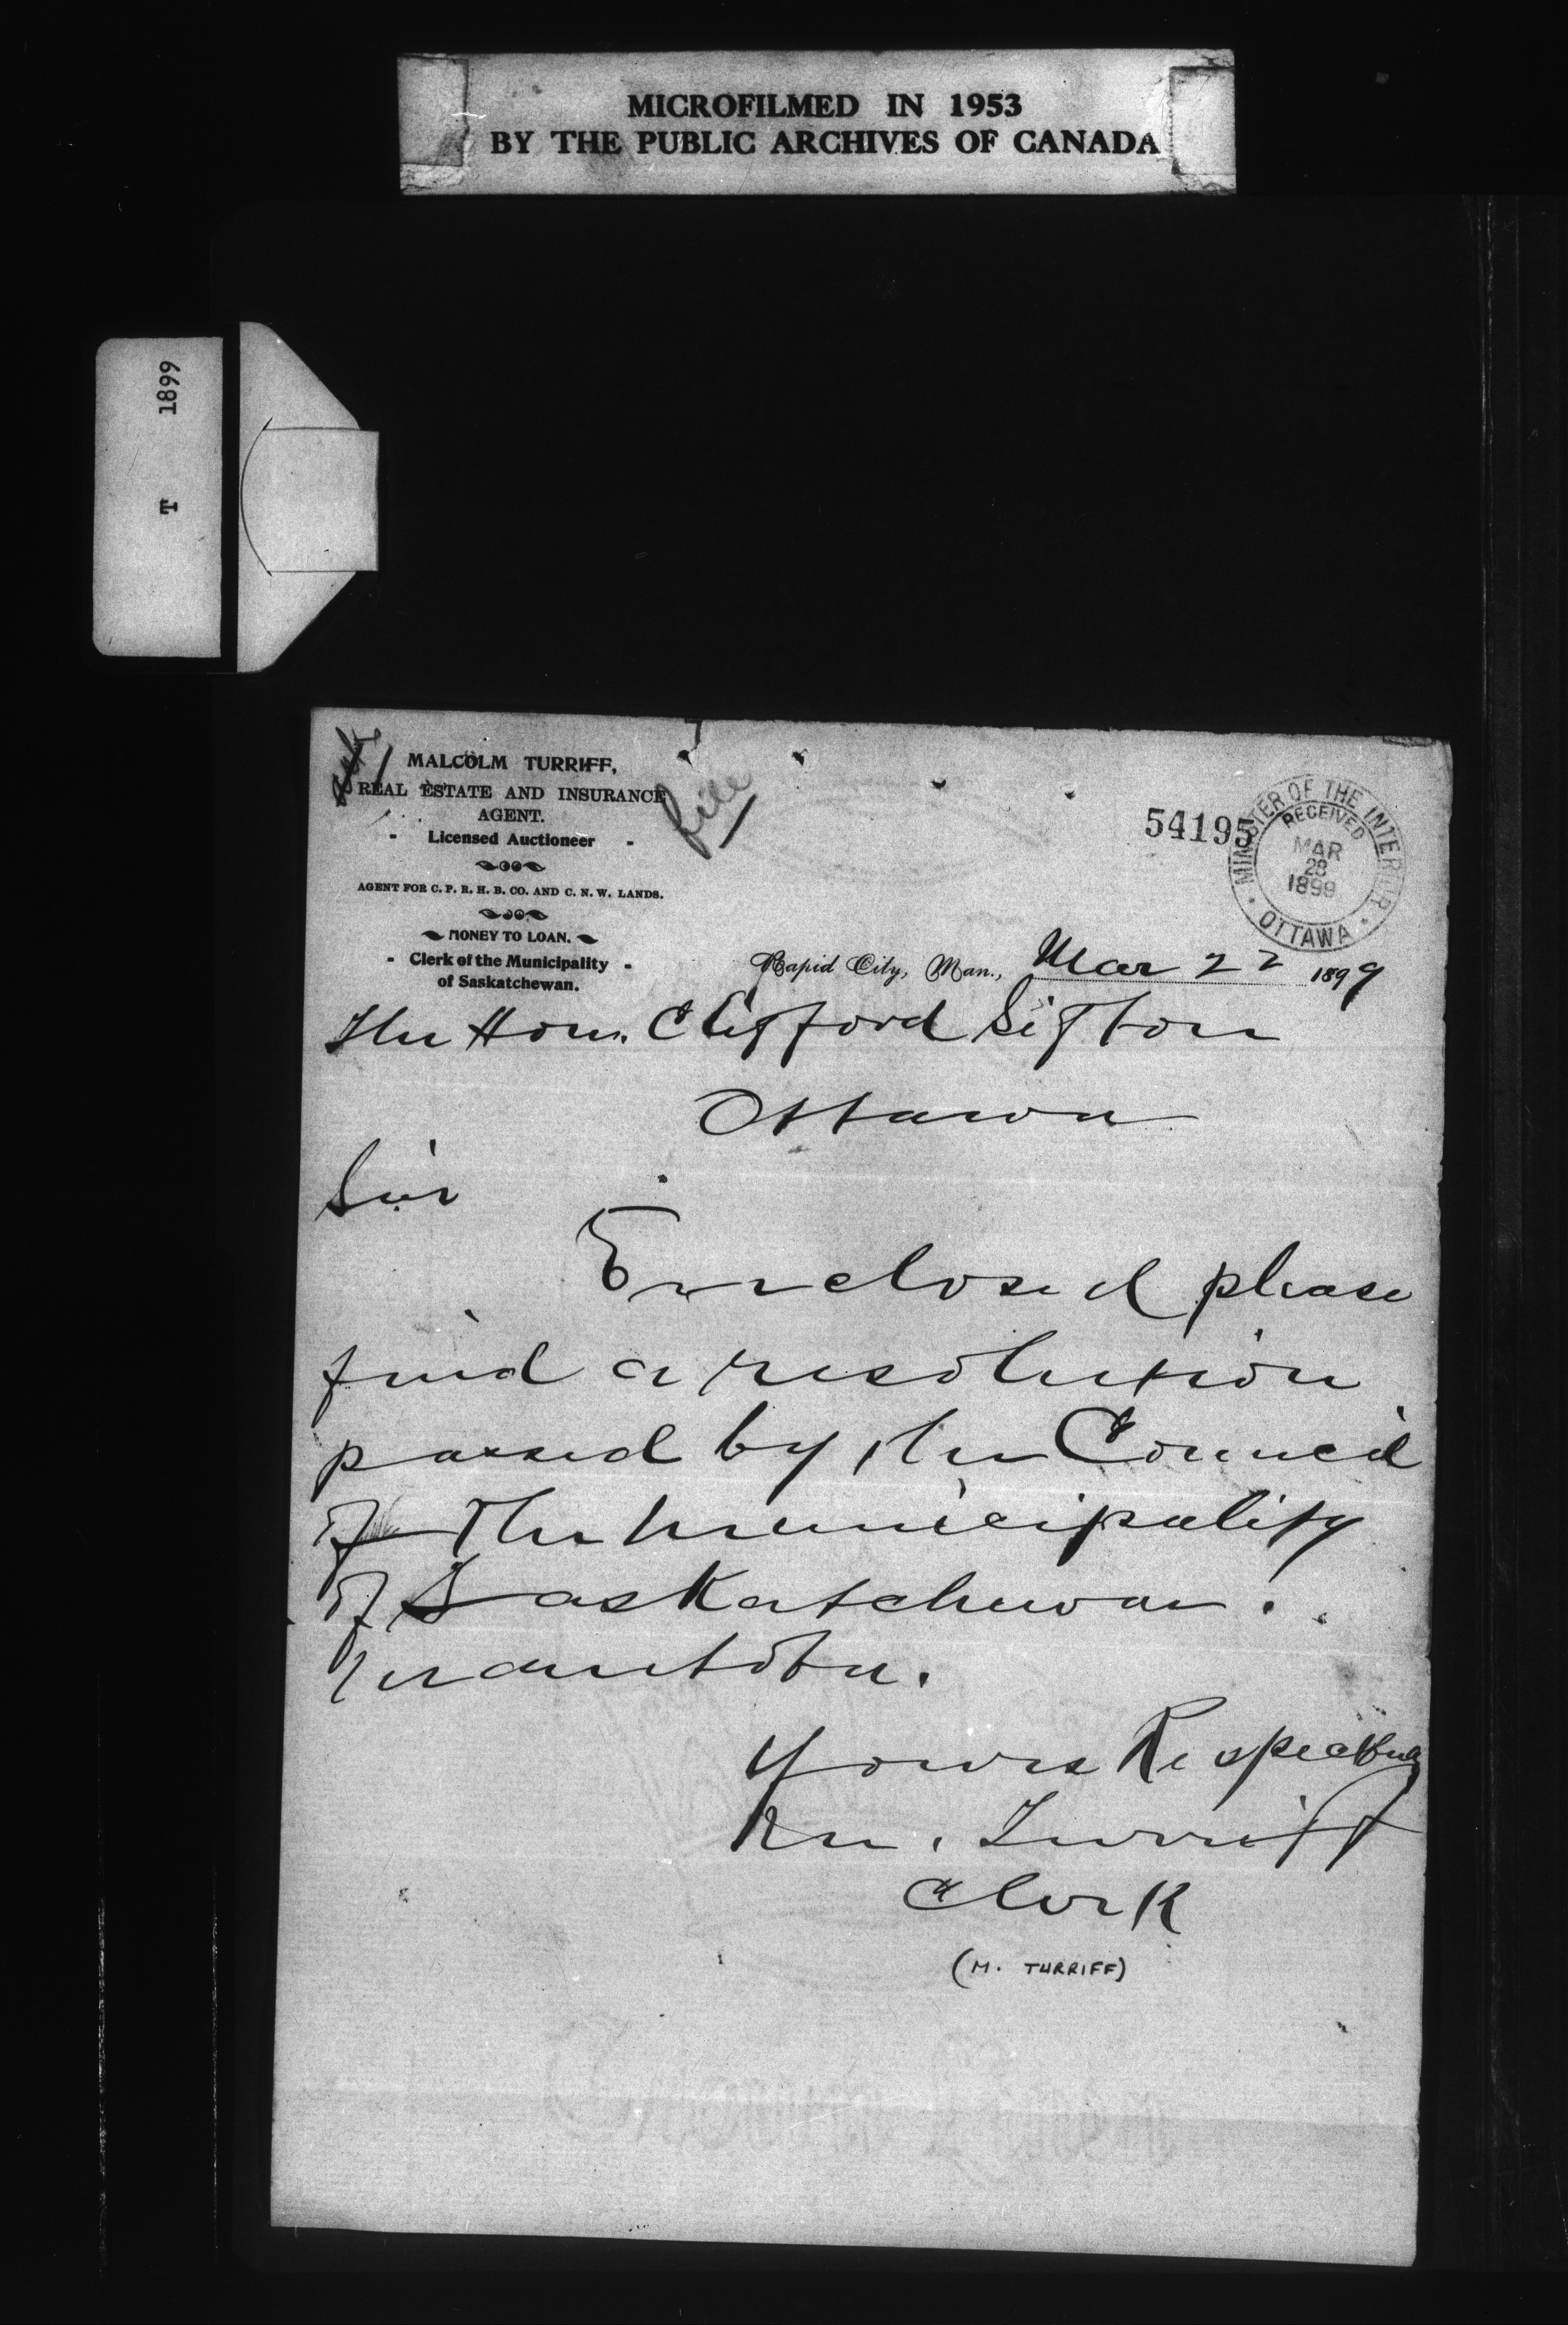 MICROFILMED IN 1953
BY THE PUBLIC ARCHIVES OF CANADA
T 1899
MALCOLM TURRIFF,
REAL ESTATE AND INSURANCE
AGENT.
- Licensed Auctioneer -
AGENT FOR C. P. R. H. B. CO. AND C. N. W. LANDS.
MONEY TO LOAN.
- Clerk of the Municipality -
of Saskatchewan.
file
54195
MINISTER OF THE INTERIOR
RECEIVED
MAR
28
1899
OTTAWA
Rapid City, Man., Mar 22 1899
The Hon. Clifford Sifton
Ottawa
Sir
Enclosed please
find a resolution
passed by the Council
of the municipality
of Saskatchewan.
manitoba.
Yours Respectfully
M. Turriff
Clerk
(M. TURRIFF)